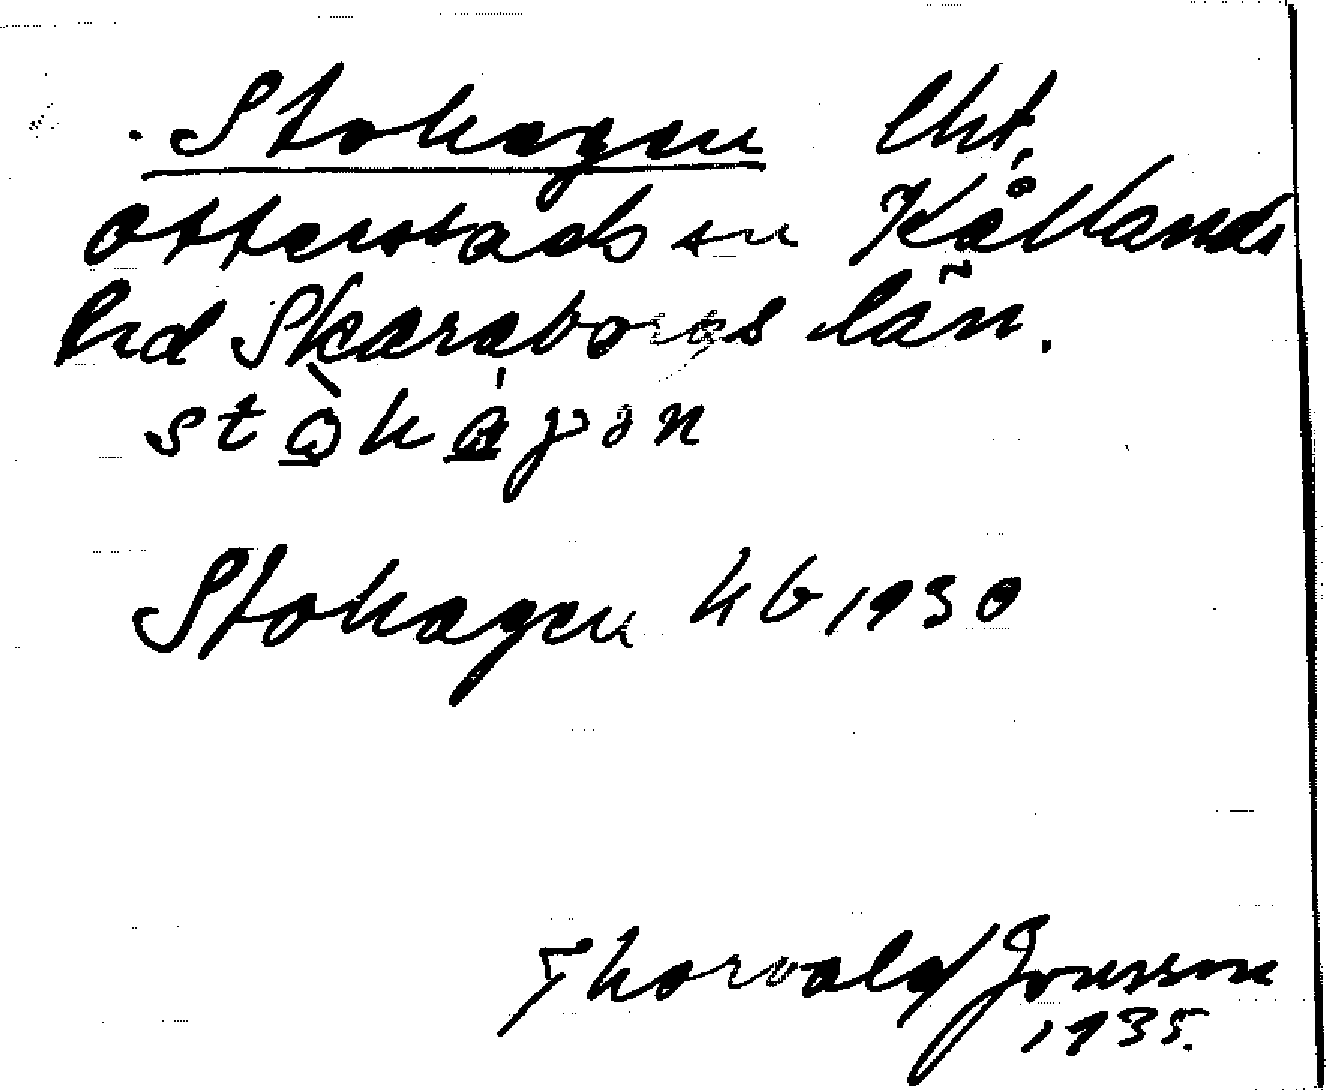 Stohagen lht,
Otterstads sn Kållands
hrd Skaraborgs län.
stòhágən
Stohagen kb 1930
Thorvald Jonsson
1935.